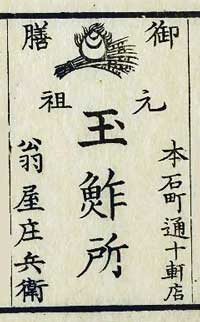 御膳
元祖
本石町通十軒店
玉鮓所
翁屋庄兵衛